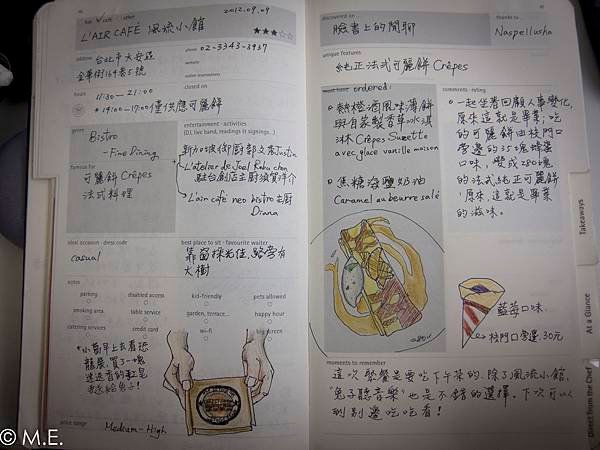 bar café other
2012.09.09
L'AIR CAFÉ 風流小館
address 台北市大安區
金華街164巷5號
phone 02-3343-3937
website
hours
11:30 — 21:00
* 14:00-17:00僅供應可麗餅
closed on
Bistro
- Fine Dining
entertainment · activities
(DJ, live band, readings & signings...)
新加坡御廚郭文秀Justin
L'atelier de Joel Robuchon
駐台創店主廚須賀洋介
L'air café neo bistro主廚
Diana
famous for
可麗餅 Crêpes
法式料理
ideal occasion · dress code
casual
best place to sit · favourite waiter
靠窗採光佳,路旁有
大樹
notes
parking
disabled access
kid-friendly
pets allowed
smoking area
table service
garden, terrace...
happy hour
catering services
credit card
wi-fi
big screen
*小萄早上去看恐
龍展,買了一塊
送給兔子!
price range
Medium - High
discovered on
臉書上的閒聊
thanks to
Naspellusha
unique features
純正法式可麗餅 Crêpes
ordered:
熱橙酒風味薄餅
與自家製香草冰淇
淋 Crêpes Suzette
avec glace vanille maison
焦糖海鹽奶油
Caramel au beurre salé
comments · rating
一起坐著回顧人事變化,
原來這就是畢業;吃
的可麗餅由校門口
旁邊的35塊蜂蜜
口味,變成280塊
的法式純正可麗餅
,原來,這就是畢業
的滋味。
藍莓口味
校門口旁邊,30元
moments to remember
這次聚餐是要吃下午茶的,除了風流小館,
"兔子聽音樂"也是不錯的選擇。下次可以
到別邊吃吃看!
Takeaways
At a Glance
Direct from the Chef
© M.E.